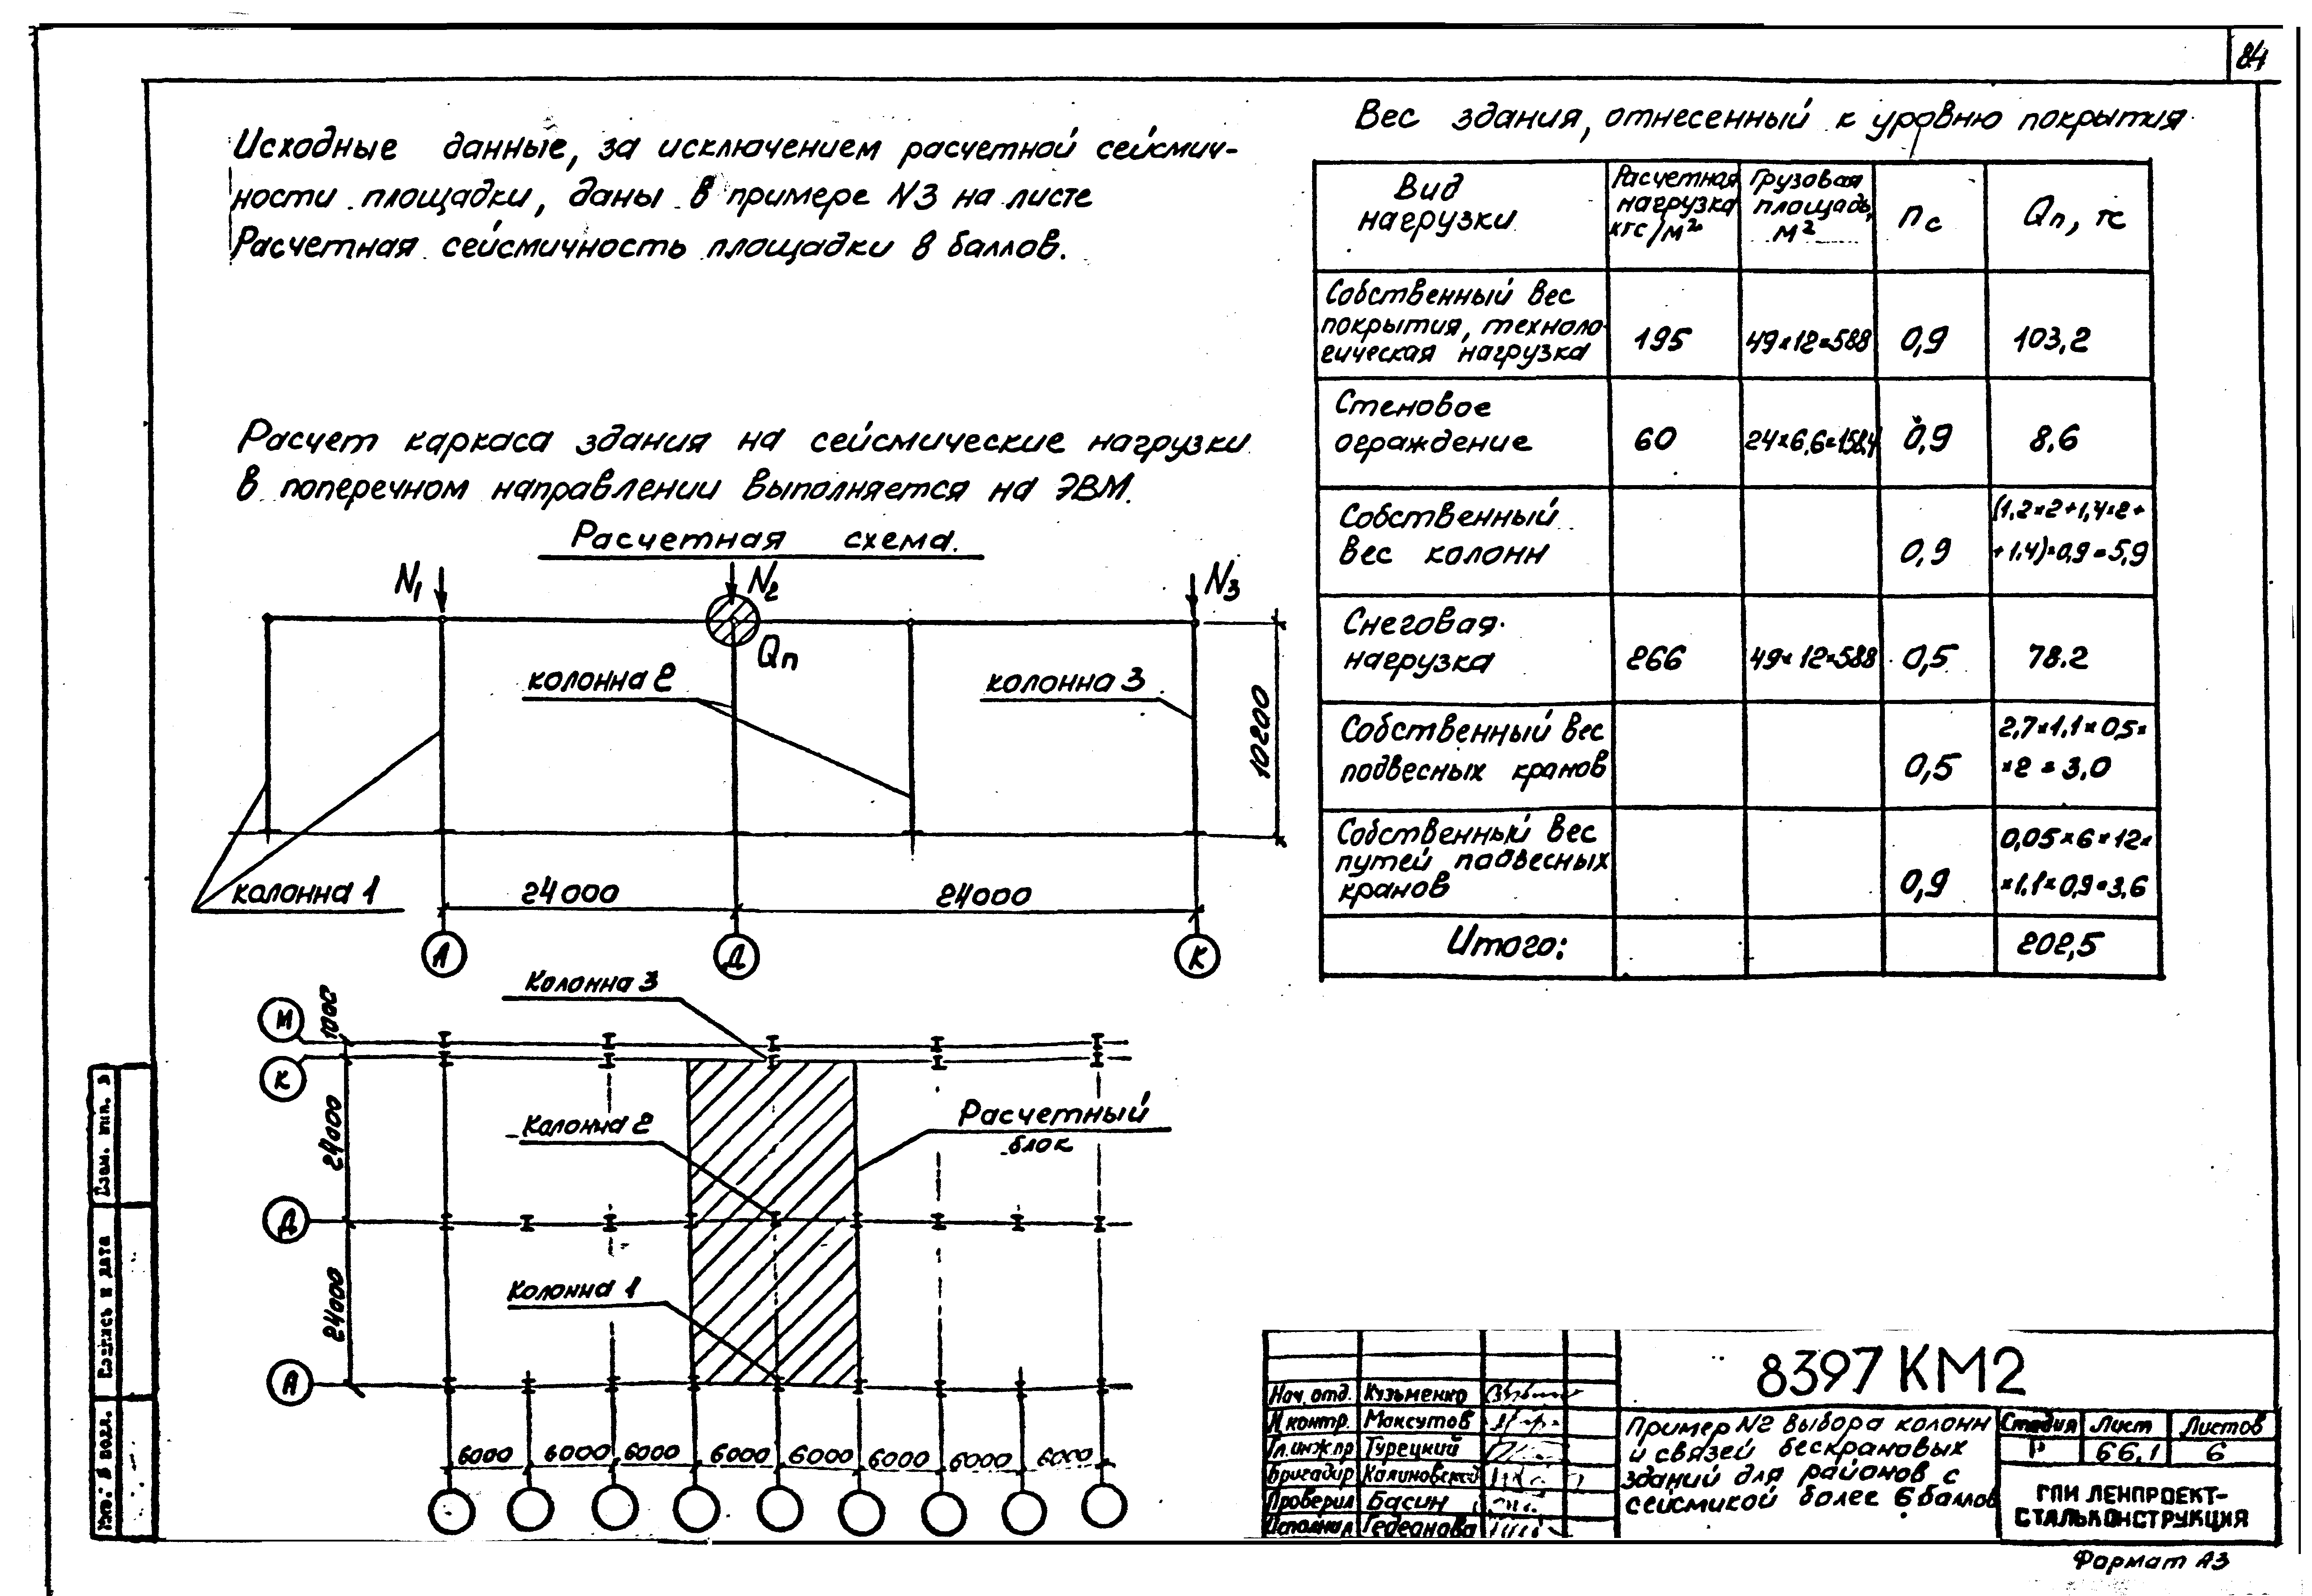 84
Исходные данные, за исключением расчетной сейсмич-
ности площадки, даны в примере N3 на листе
Расчетная сейсмичность площадки 8 баллов.
Расчет каркаса здания на сейсмические нагрузки
в поперечном направлении выполняется на ЭВМ.
Расчетная схема.
N1 N2 N3
Qп
колонна 2
колонна 3
10200
колонна 1
24000
24000
А Д К
Колонна 3
М
1000
К
24000
Колонна 2
Расчетный
блок
Д
24000
Колонна 1
А
6000 6000 6000 6000 6000 6000 6000 6000
Вес здания, отнесенный к уровню покрытия
Вид
нагрузки
Расчетная
нагрузка
кгс/м²
Грузовая
площадь,
м²
nс
Qп, тс
Собственный вес
покрытия, техноло-
гическая нагрузка
195
49×12=588
0,9
103,2
Стеновое
ограждение
60
24×6,6=158,4
0,9
8,6
Собственный
вес колонн
0,9
(1,2×2+1,4×2+
+1,4)×0,9=5,9
Снеговая
нагрузка
266
49×12=588
0,5
78.2
Собственный вес
подвесных кранов
0,5
2,7×1,1×0,5×
×2=3,0
Собственный вес
путей подвесных
кранов
0,9
0,05×6×12×
×1,1×0,9=3,6
Итого:
202,5
8397 КМ2
Нач. отд. Кузьменко
Н контр. Максутов
Гл.инж.пр Турецкий
Бригадир Калиновский
Проверил Басин
Исполнил Гедеанова
Пример N2 выбора колонн
и связей бескрановых
зданий для районов с
сейсмикой более 6 баллов
Стадия Лист Листов
Р 66,1 6
ГПИ ЛЕНПРОЕКТ-
СТАЛЬКОНСТРУКЦИЯ
Формат А3
Взам. инв.
Подпись и дата
подл.